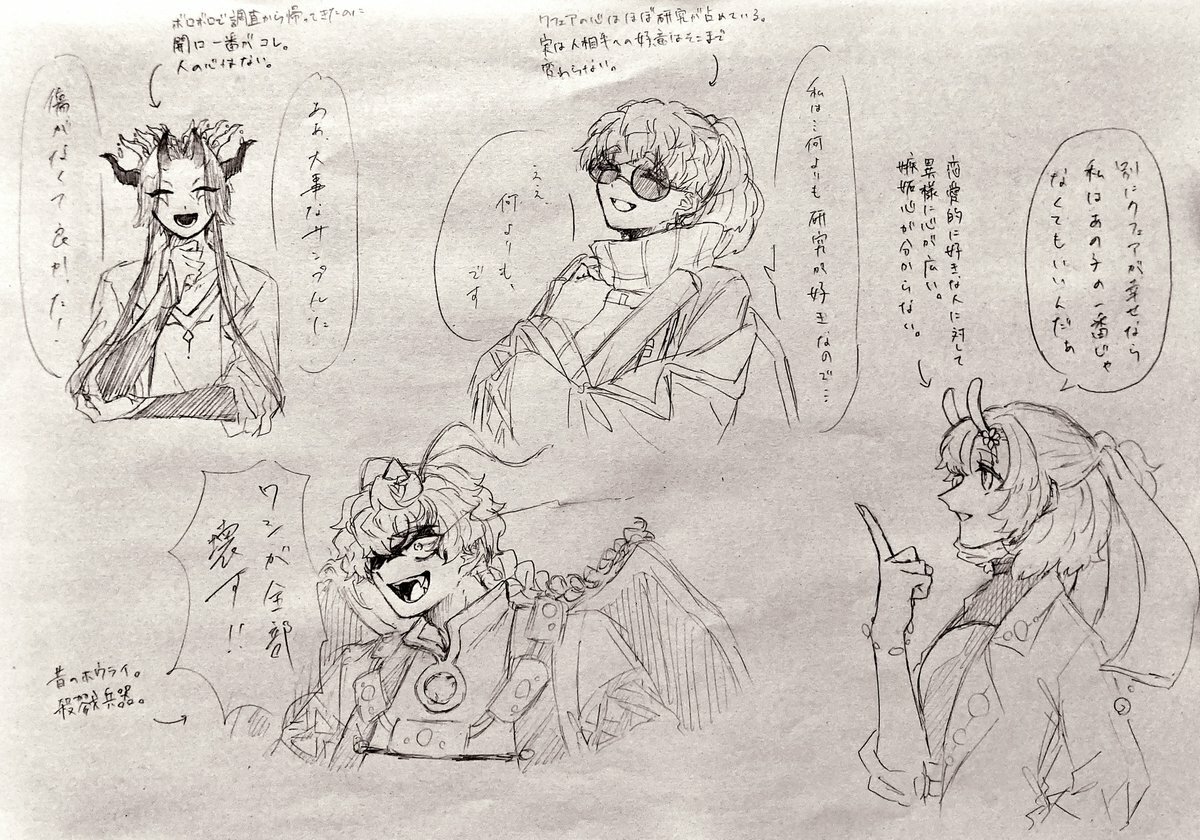 ボロボロで調査から帰ってきたのに
開口一番がコレ。
人の心はない。
ああ、大事なサンプルに
傷がなくて良かった！
クフェアの心はほぼ研究が占めている。
実は人相手への好意はそこまで
変わらない。
私は…何よりも研究が好き、なので…
ええ
何よりも、
です
別にクフェアが幸せなら
私はあの子の一番じゃ
なくてもいいんだぁ
恋愛的に好きな人に対して
異様に心が広い。
嫉妬心が分からない。
ワシが全部
壊す!!
昔のホウライ。
殺戮兵器。